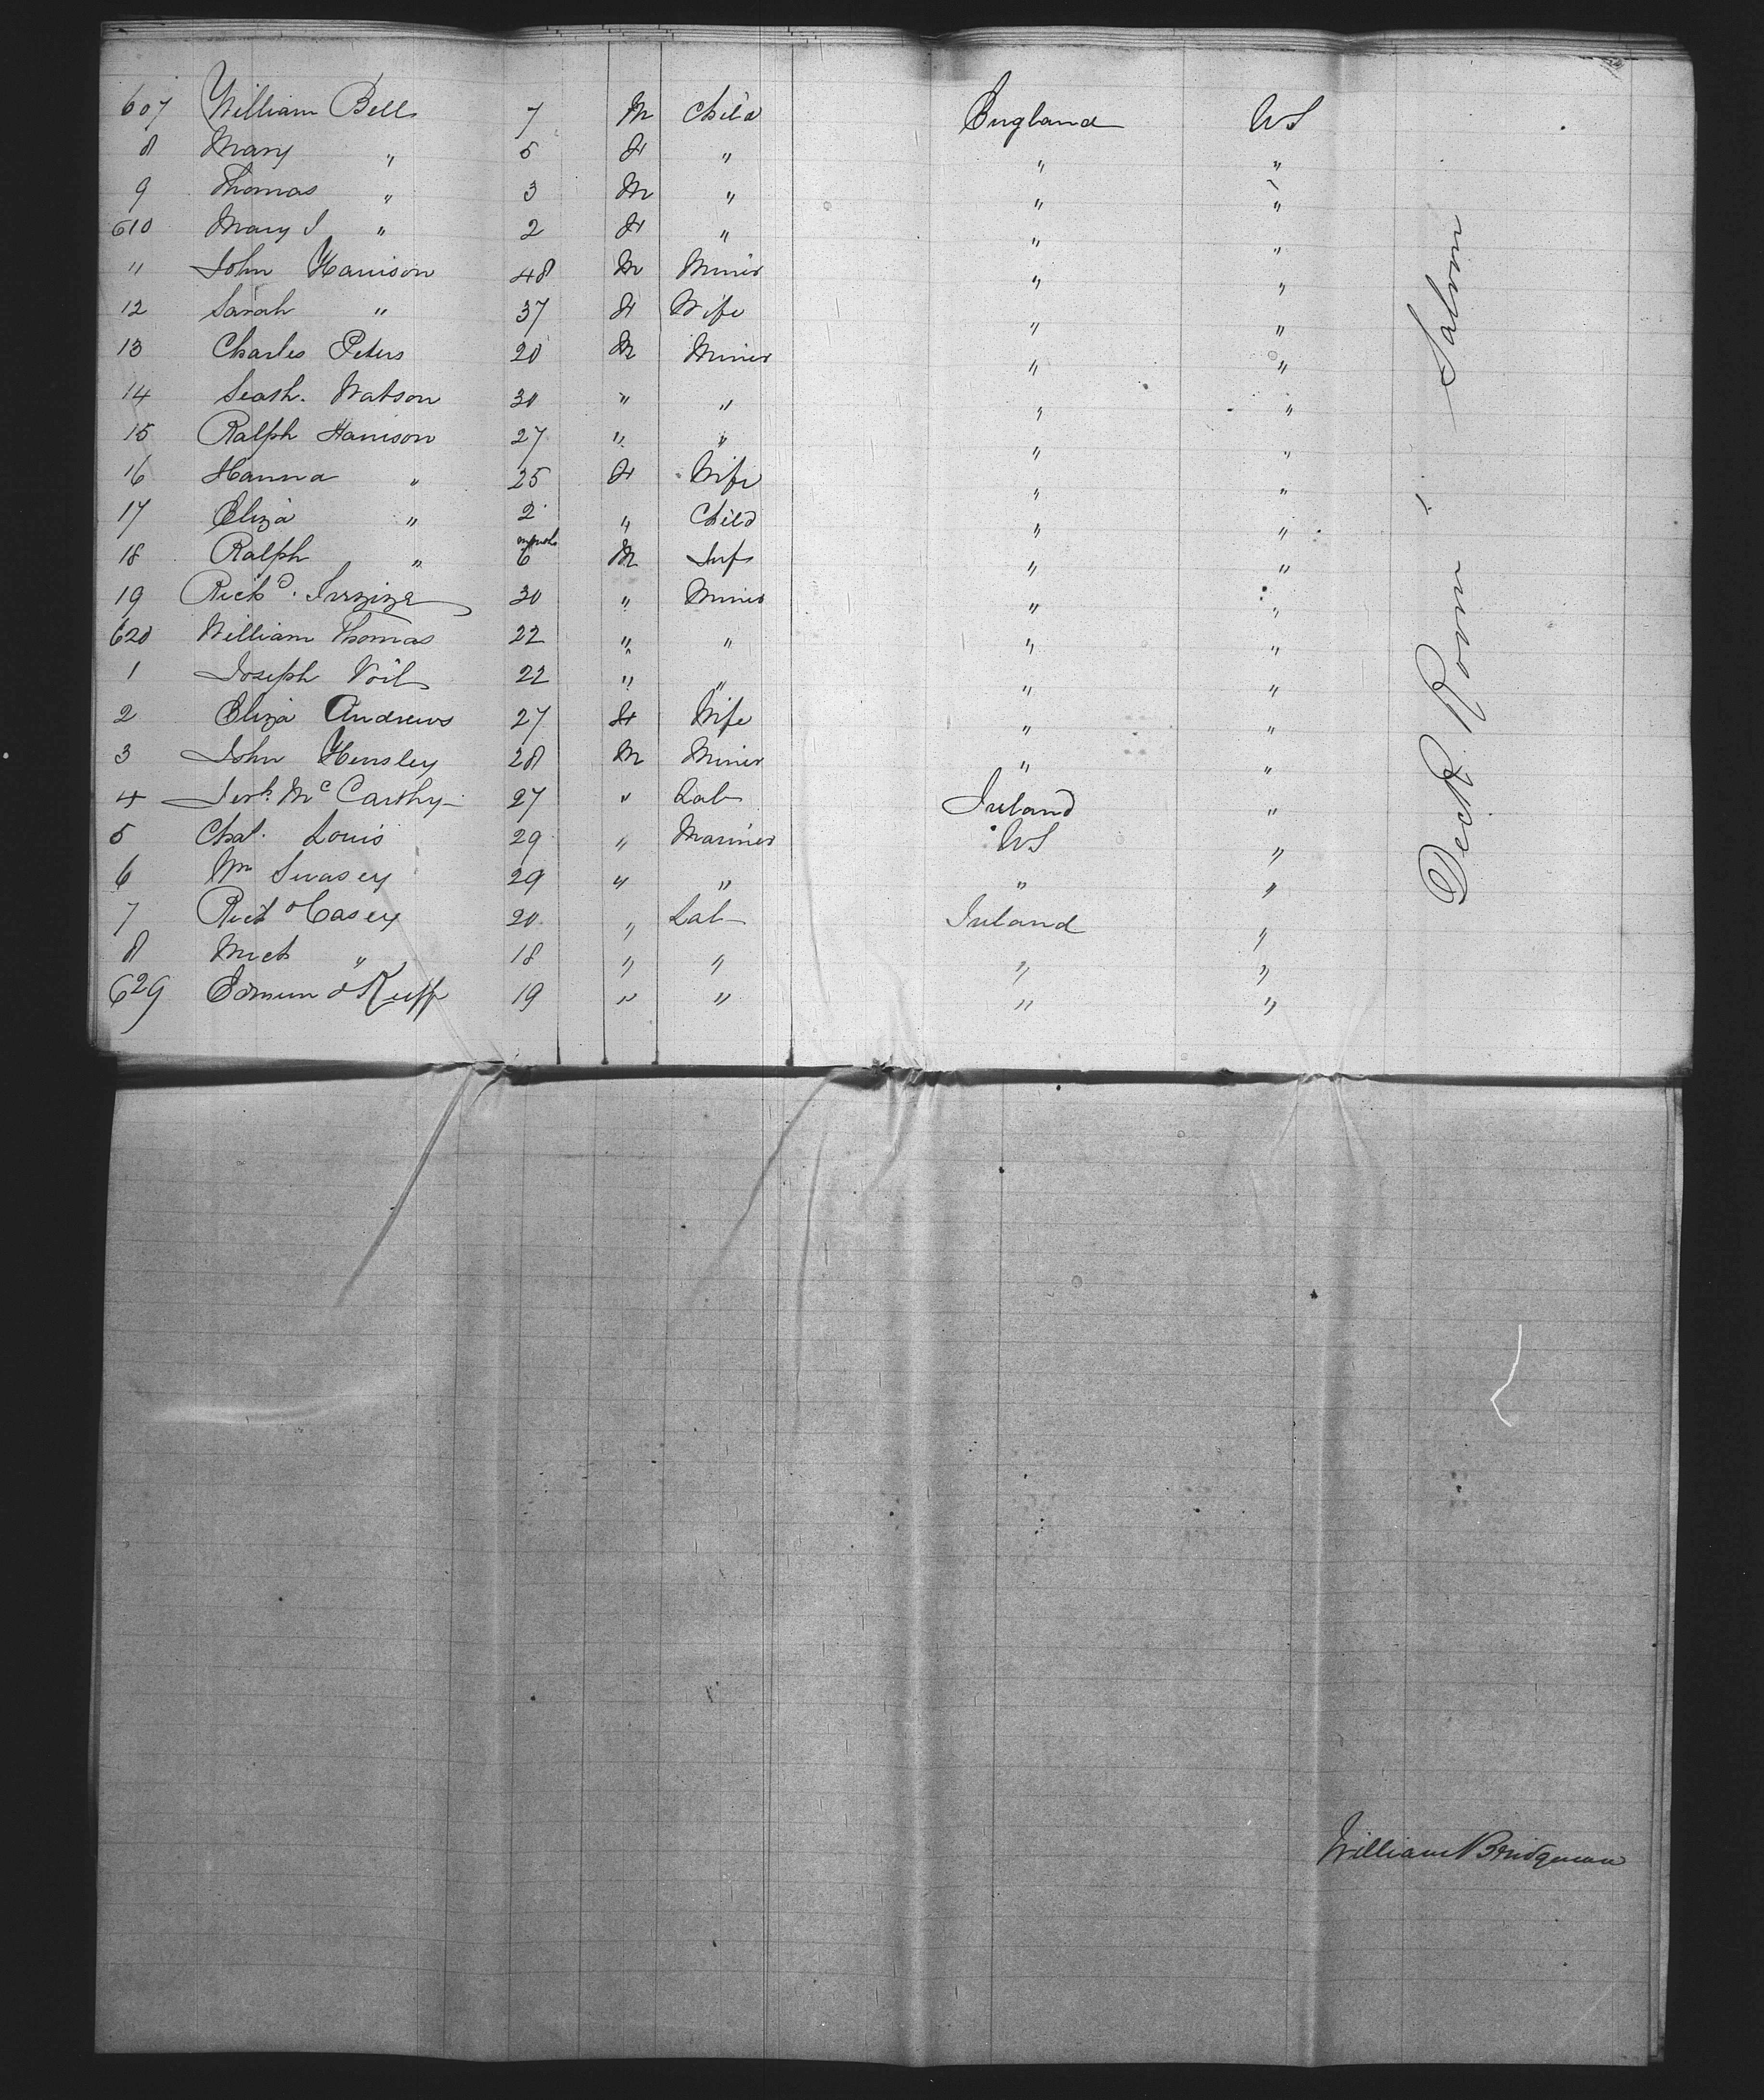 607 William Bell 7 M Child England US
8 Mary " 5 F " " "
9 Thomas " 3 M " " "
610 Mary J " 2 F " " "
11 John Harrison 48 M Miner " "
12 Sarah " 37 F Wife " "
13 Charles Peters 20 M Miner " "
14 Watson 30 " " " "
15 Ralph Harrison 27 " " " "
16 Hanna " 25 F Wife " "
17 Eliza " 2 " Child " "
18 Ralph " 6 months M Inft " "
19 Richd. 30 " Miner " "
620 William Thomas 22 " " " "
1 Joseph 22 " " " "
2 Eliza Andrews 27 F Wife " "
3 John Hensley 28 M Miner " "
4 Mc Carthy 27 " Lab Ireland "
5 Chas. Louis 29 " Mariner US "
6 Wm Swasey 29 " " " "
7 Richd Casey 20 " Lab Ireland "
8 Mich " 18 " " " "
629 Edmund Keeffe 19 " " " "
Deck Room & Saloon
William Bridgman